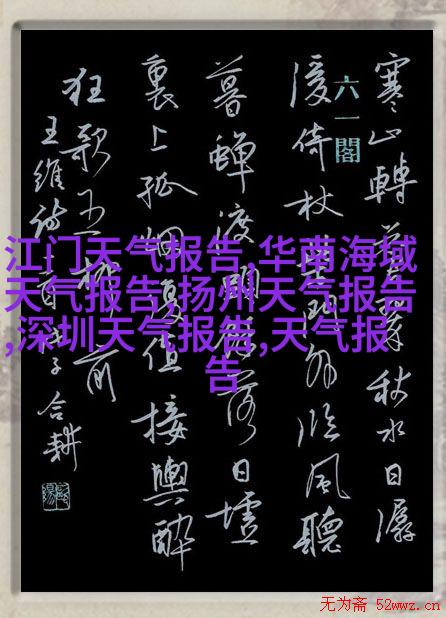 寒山轉蒼翠秋水日潺
六一閣
湲倚杖柴門外臨風聽
暮蟬渡頭餘落日墟
裏上孤烟復值接輿醉
狂歌五柳前
王維詩 子合耕
江门天气报告,华南海域
天气报告,扬州天气报告
,深圳天气报告,天气报
告
无为斋 52wwz.cn